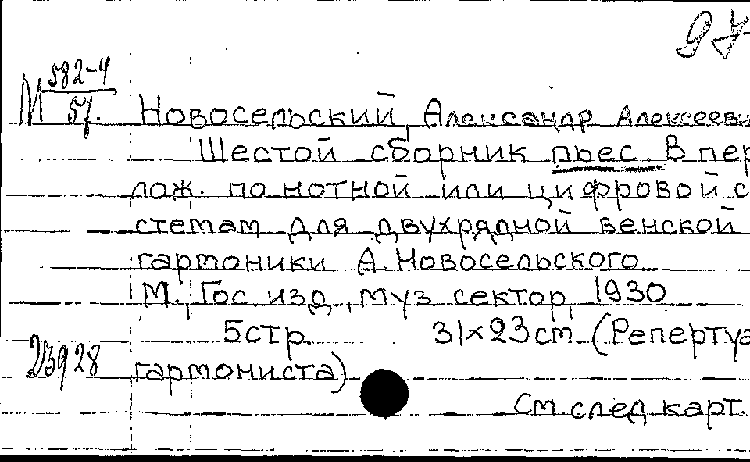 97
М 582-4
57.
Новосельский, Александр Алексееви
Шестой сборник пьес. В пер
лож. по нотной или цифровой с
стемам для двухрядной венской
гармоники А. Новосельского
М., Гос. изд., муз сектор, 1930
5стр. 31×23см. (Репертуа
23928 гармониста)
См. след. карт.